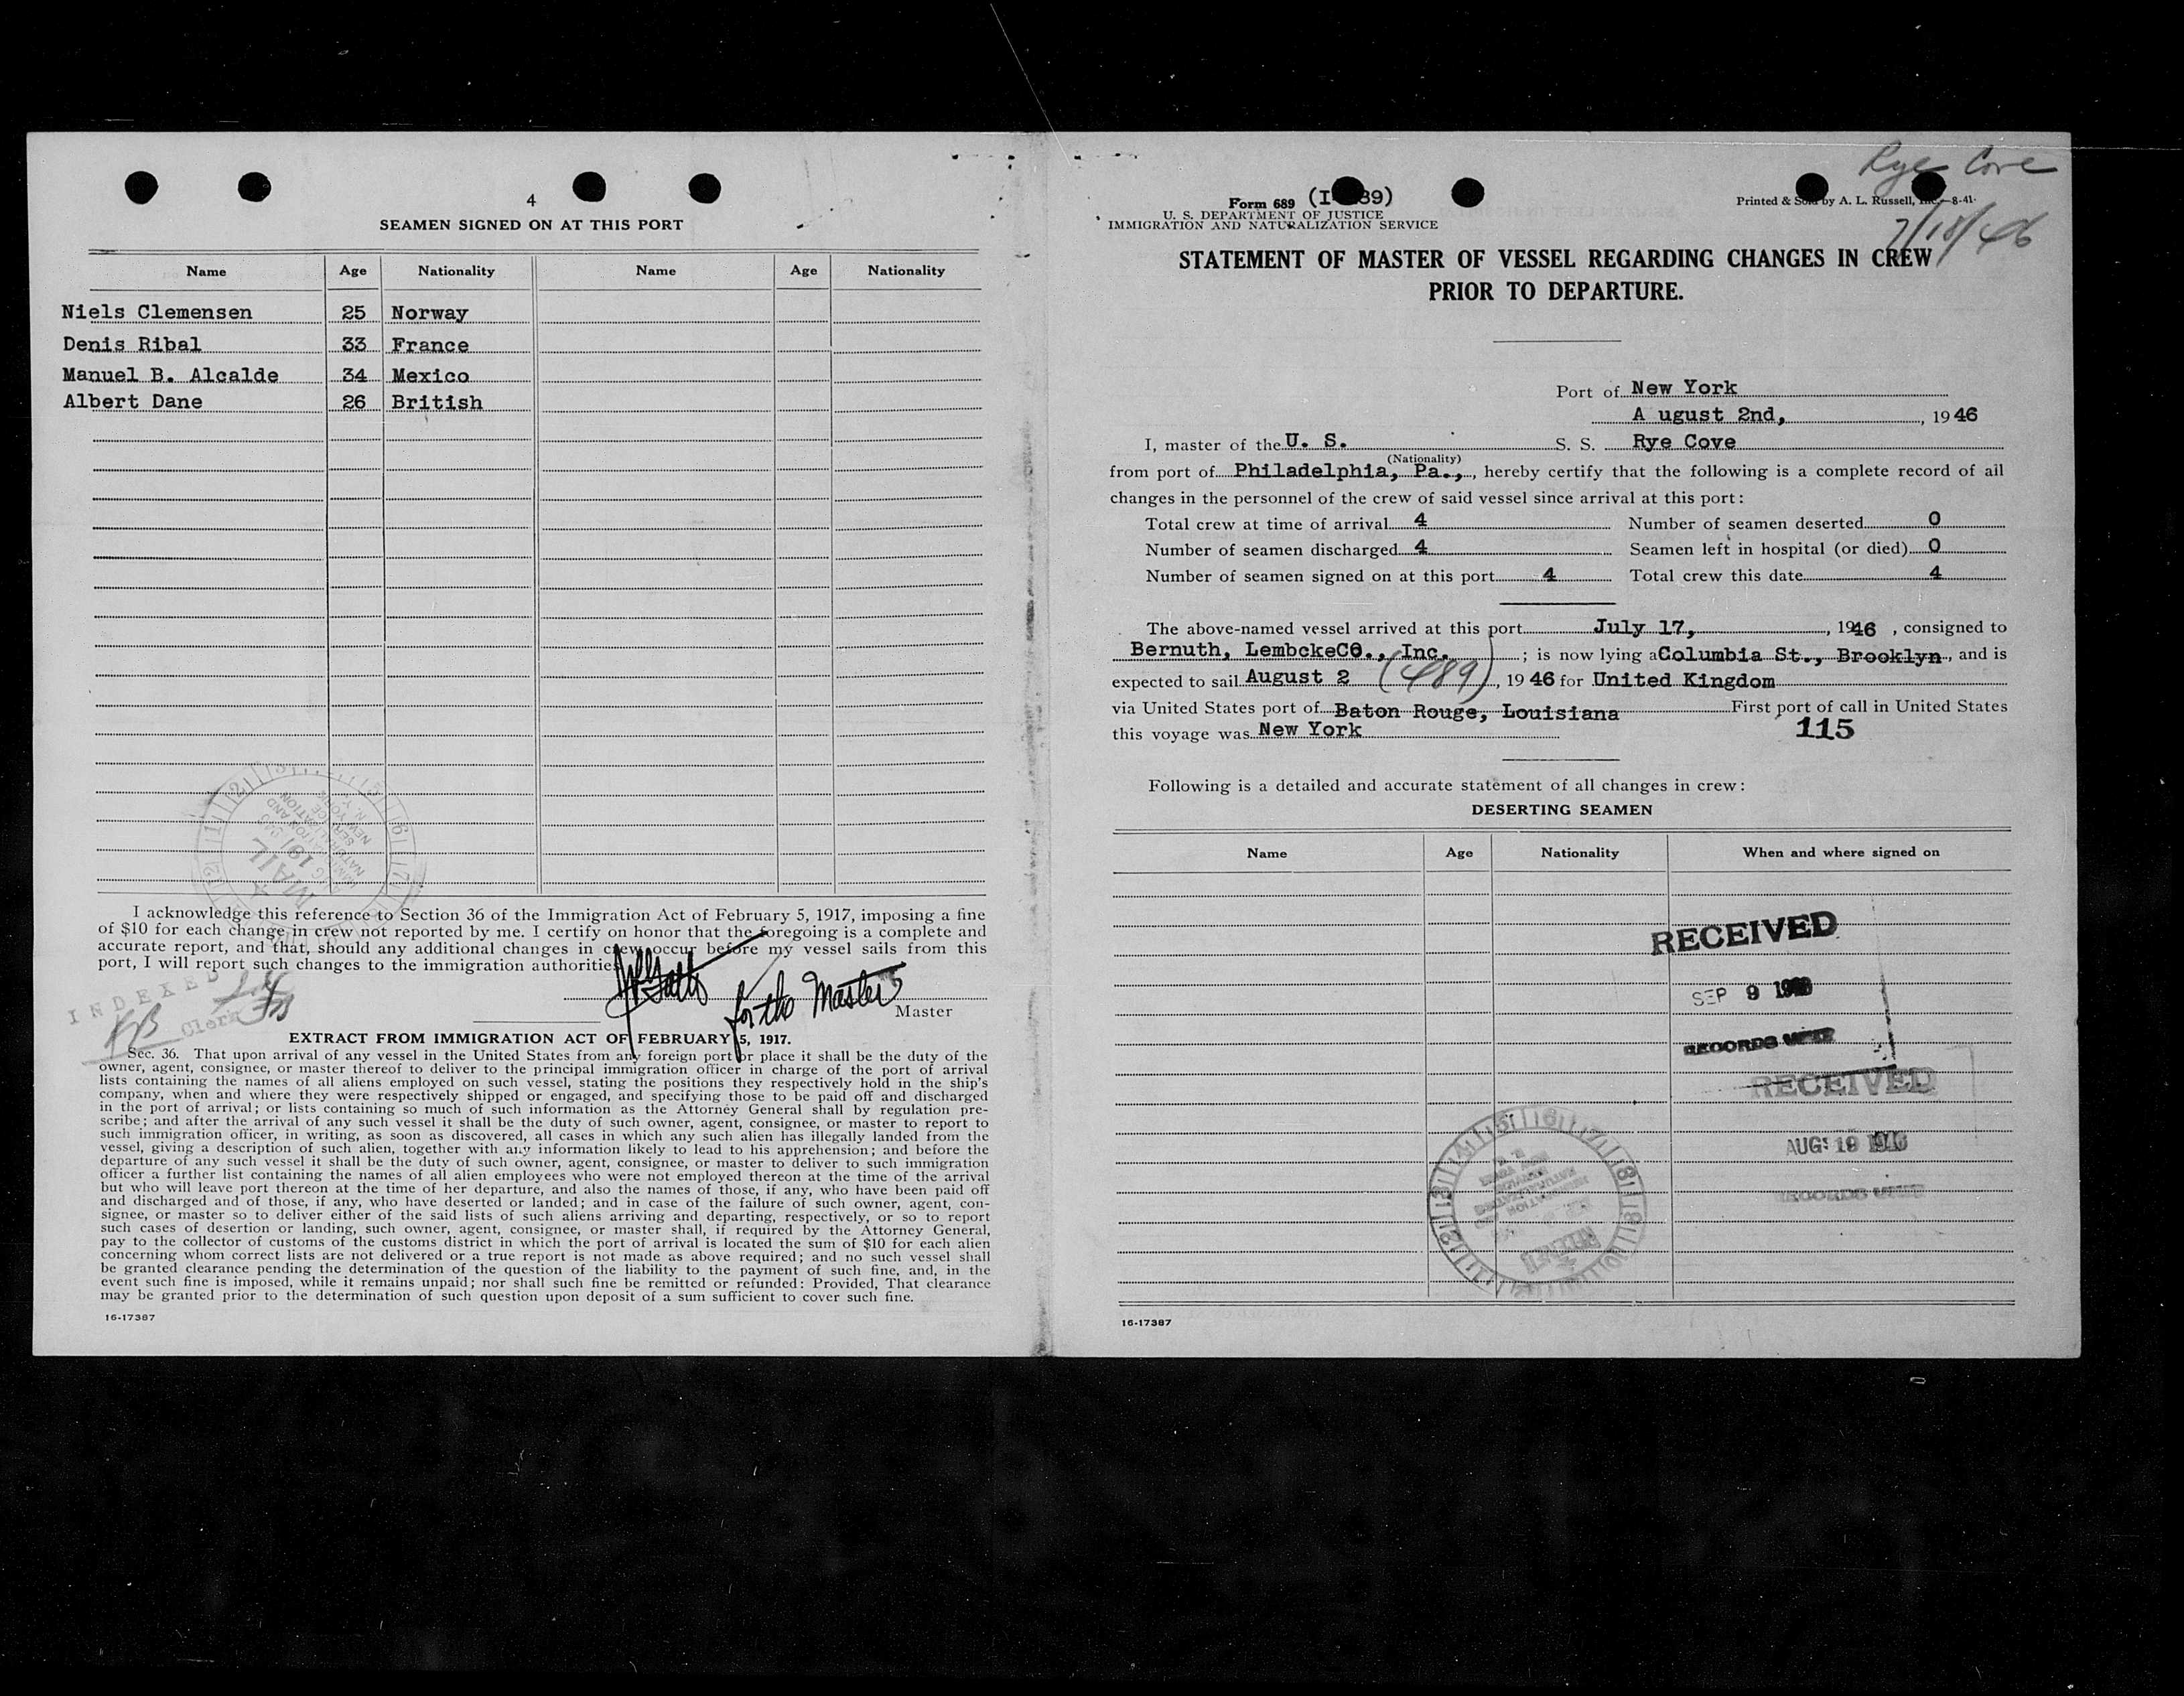 4
SEAMEN SIGNED ON AT THIS PORT
Name Age Nationality Name Age Nationality
Niels Clemensen 25 Norway
Denis Ribal 33 France
Manuel B. Alcalde 34 Mexico
Albert Dane 26 British
I acknowledge this reference to Section 36 of the Immigration Act of February 5, 1917, imposing a fine
of $10 for each change in crew not reported by me. I certify on honor that the foregoing is a complete and
accurate report, and that, should any additional changes in crew occur before my vessel sails from this
port, I will report such changes to the immigration authorities
for the Master
Master
INDEXED
Clerk
EXTRACT FROM IMMIGRATION ACT OF FEBRUARY 5, 1917.
Sec. 36. That upon arrival of any vessel in the United States from any foreign port or place it shall be the duty of the
owner, agent, consignee, or master thereof to deliver to the principal immigration officer in charge of the port of arrival
lists containing the names of all aliens employed on such vessel, stating the positions they respectively hold in the ship's
company, when and where they were respectively shipped or engaged, and specifying those to be paid off and discharged
in the port of arrival; or lists containing so much of such information as the Attorney General shall by regulation pre-
scribe; and after the arrival of any such vessel it shall be the duty of such owner, agent, consignee, or master to report to
such immigration officer, in writing, as soon as discovered, all cases in which any such alien has illegally landed from the
vessel, giving a description of such alien, together with any information likely to lead to his apprehension; and before the
departure of any such vessel it shall be the duty of such owner, agent, consignee, or master to deliver to such immigration
officer a further list containing the names of all alien employees who were not employed thereon at the time of the arrival
but who will leave port thereon at the time of her departure, and also the names of those, if any, who have been paid off
and discharged and of those, if any, who have deserted or landed; and in case of the failure of such owner, agent, con-
signee, or master so to deliver either of the said lists of such aliens arriving and departing, respectively, or so to report
such cases of desertion or landing, such owner, agent, consignee, or master shall, if required by the Attorney General,
pay to the collector of customs of the customs district in which the port of arrival is located the sum of $10 for each alien
concerning whom correct lists are not delivered or a true report is not made as above required; and no such vessel shall
be granted clearance pending the determination of the question of the liability to the payment of such fine, and, in the
event such fine is imposed, while it remains unpaid; nor shall such fine be remitted or refunded: Provided, That clearance
may be granted prior to the determination of such question upon deposit of a sum sufficient to cover such fine.
16-17387
Rye Cove
7/18/46
Form 689 (I- 89)
U. S. DEPARTMENT OF JUSTICE
IMMIGRATION AND NATURALIZATION SERVICE
Printed & Sold by A. L. Russell, Inc.—8-41.
STATEMENT OF MASTER OF VESSEL REGARDING CHANGES IN CREW
PRIOR TO DEPARTURE.
Port of New York
A ugust 2nd, , 19 46
I, master of the U. S. S. S. Rye Cove
(Nationality)
from port of Philadelphia, Pa., , hereby certify that the following is a complete record of all
changes in the personnel of the crew of said vessel since arrival at this port:
Total crew at time of arrival 4 Number of seamen deserted 0
Number of seamen discharged 4 Seamen left in hospital (or died) 0
Number of seamen signed on at this port 4 Total crew this date 4
The above-named vessel arrived at this port July 17, , 1946 , consigned to
Bernuth, LembckeCO., Inc. ; is now lying a Columbia St., Brooklyn , and is
expected to sail August 2 (489) , 19 46 for United Kingdom
via United States port of Baton Rouge, Louisiana First port of call in United States
this voyage was New York 115
Following is a detailed and accurate statement of all changes in crew:
DESERTING SEAMEN
Name Age Nationality When and where signed on
RECEIVED
SEP 9 1946
RECORDS
RECEIVED
AUG 19 1946
RECORDS
16-17387